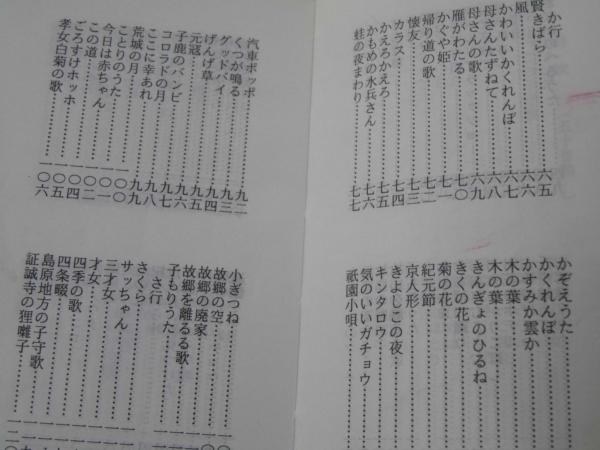 か行
賢きばら……六五
風……六六
かわいいかくれんぼ……六七
母さんたずねて……六八
母さんの歌……六九
雁がわたる……七〇
かぐや姫……七一
帰り道の歌……七二
懐友……七三
カラス……七四
かえろかえろ……七五
かもめの水兵さん……七六
蛙の夜まわり……七七
かぞえうた……
かくれんぼ……
かすみか雲か……
木の葉……
木の葉……
きんぎょのひるね……
きくの花……
菊の花……
紀元節……
京人形……
きよしこの夜……
キンタロウ……
気のいいガチョウ……
祇園小唄……
汽車ポッポ……九二
くつが鳴る……
グッドバイ……
げんげ草……
元冦……
子鹿のバンビ……九六
コロラドの月……
ここに幸あれ……九八
荒城の月……九九
ことりのうた……
今日は赤ちゃん……
この道……
ごろすけホッホ……
孝女白菊の歌……一〇六
小ぎつね……
故郷の空……
故郷の廃家……
故郷を離るる歌……
子もりうた……
さ行
さくら……
サッちゃん……
三才女……
才女……
四季の歌……
四条畷……
島原地方の子守歌……
証誠寺の狸囃子……